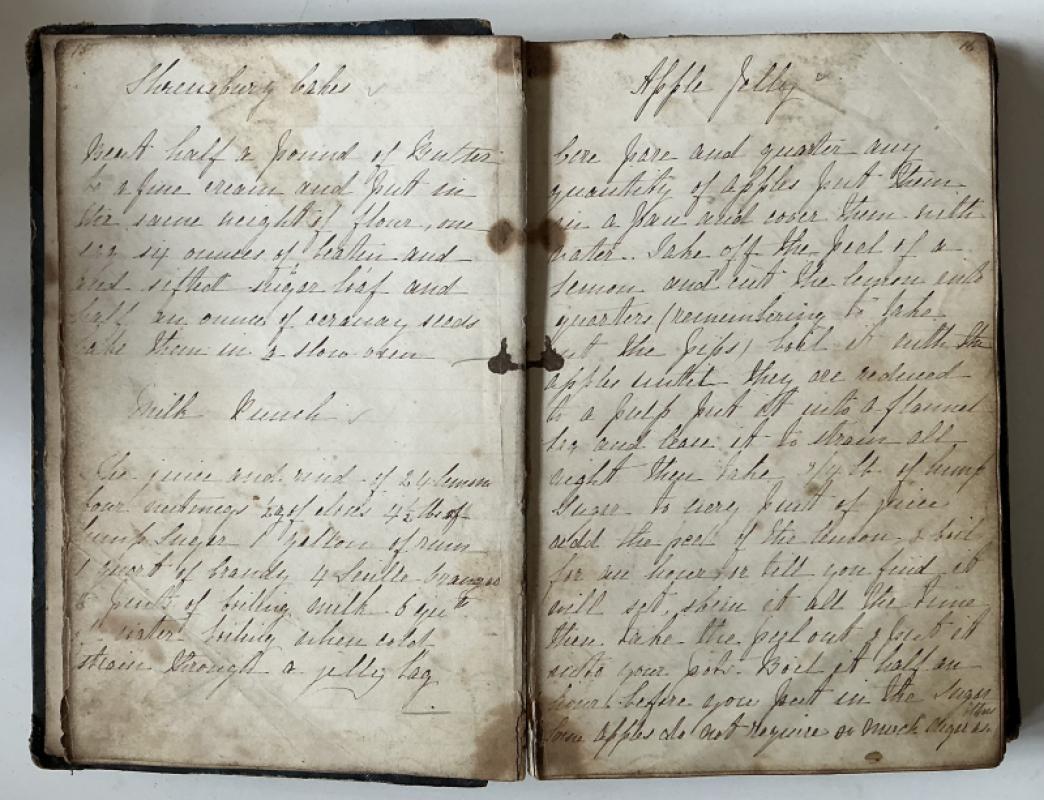 15
Shrewsbury Cakes
Beat half a pound of Butter
to a fine cream and put in
the same weight of flour, one
egg six ounces of beaten and
and sifted sugar loaf and
half an ounce of carraway seeds
bake them in a slow oven
Milk Punch
The juice and rind of 24 lemons
four nutmegs of cloves 4½ lbs of
lump Sugar 1 gallon of rum
1 quart of brandy 4 Seville oranges
pints of boiling milk 6 qts
water boiling when cold
strain through a jelly bag
16
Apple Jelly
Core pare and quarter any
quantity of apples put them
in a pan and cover them with
water. Take off the peel of a
Lemon and cut the lemon into
quarters (remembering to take
out the pips) boil it with the
apples until they are reduced
to a pulp put it into a flannel
bag and leave it to strain all
night then take 3/4 lb of lump
Sugar to every pint of juice
add the peel of the lemon & boil
for an hour or till you find it
will set, skim it all the time
then take the peel out & put it
into your pots. Boil it half an
hour before you put in the Sugar
Some apples do not require so much Sugar as